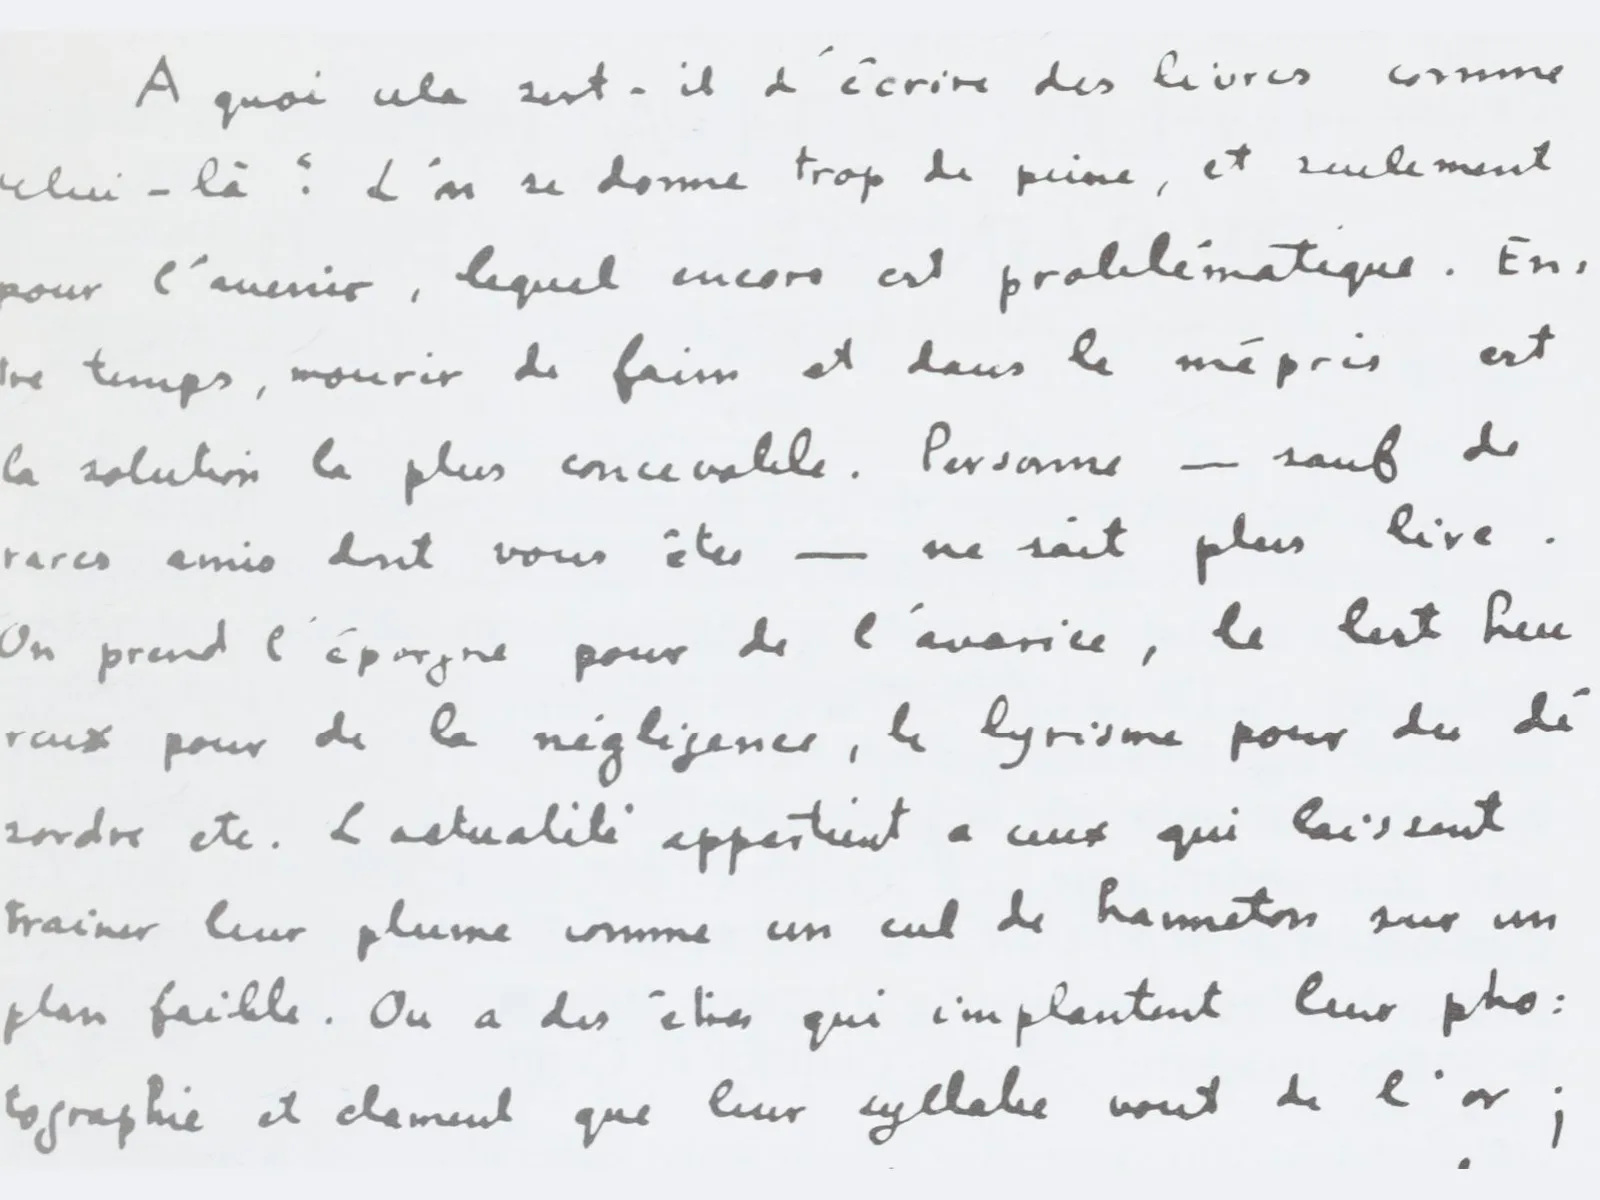 A quoi cela sert-il d'écrire des livres comme
celui-là ? L'on se donne trop de peine, et seulement
pour l'avenir, lequel encore est problématique. En-
tre temps, mourir de faim et dans le mépris est
la solution la plus concevable. Personne — sauf de
rares amis dont vous êtes — ne sait plus lire.
On prend l'épargne pour de l'avarice, le heu
reux pour de la négligence, le lyrisme pour du dé
sordre etc. L'actualité appartient a ceux qui laissent
trainer leur plume comme un cul de hanneton sur un
plan faible. Ou a des êtres qui implantent leur pho:
tographie et clament que leur syllabe vout de l'or ;